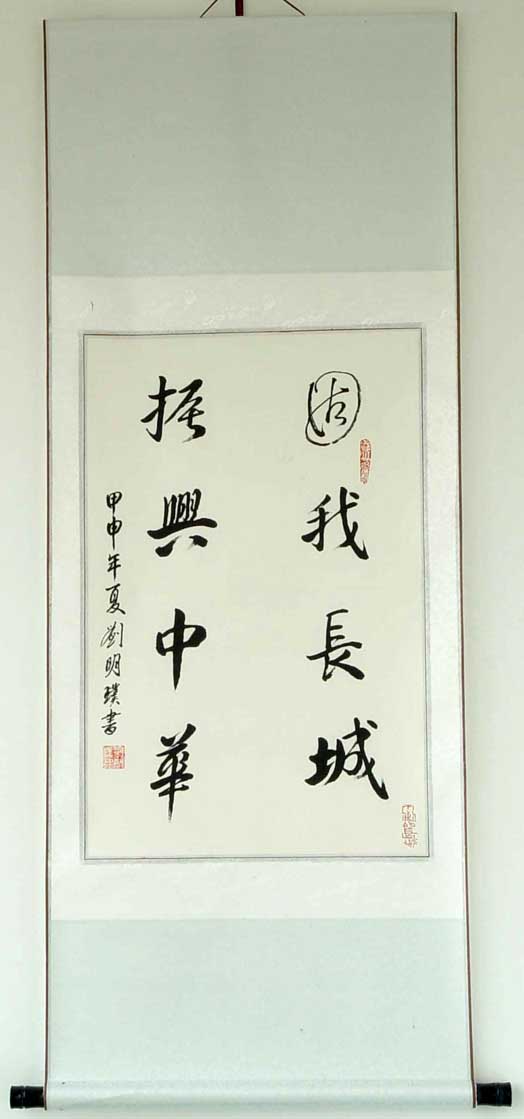 固我長城
振興中華
甲申年夏劉明璞書